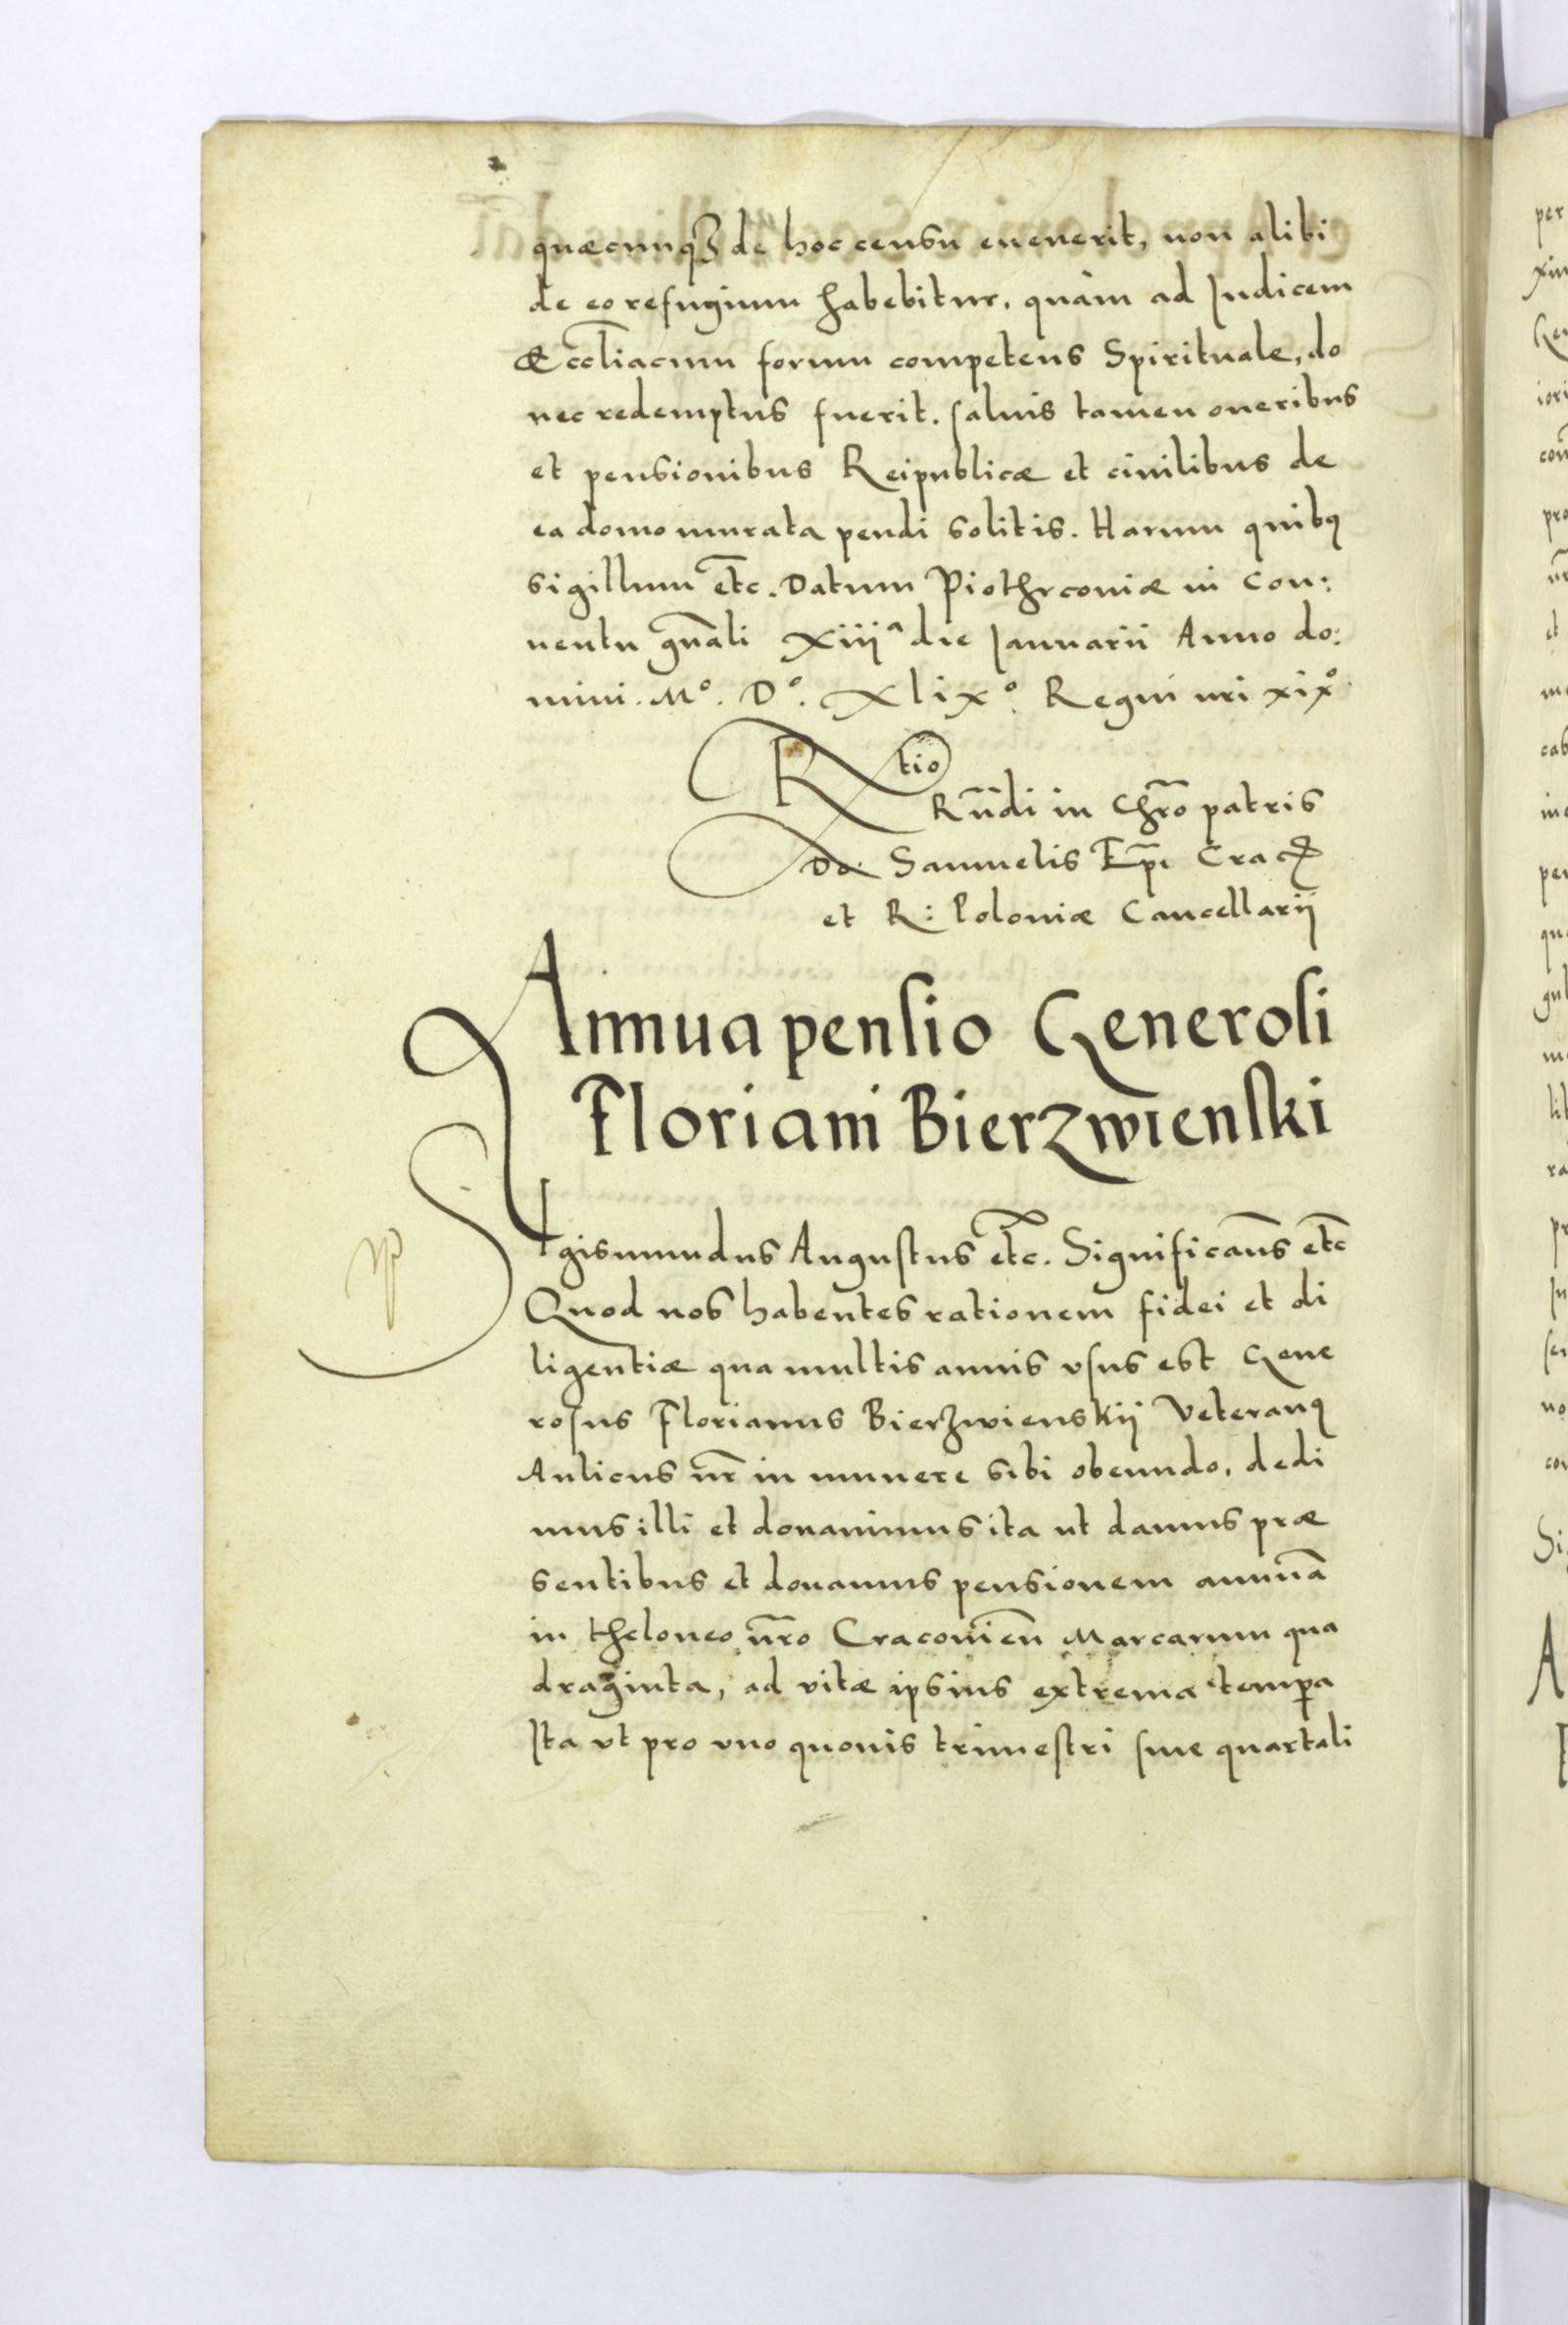 quæcunqȝ de hoc censu euenerit, non alibi
de eo refugium habebitur, quàm ad Iudicem
& Eccl̃iacum forum competens Spirituale, do
nec redemptus fuerit. saluis tamen oneribus
et pensionibus Reipublicæ et ciuilibus de
ea domo murata pendi solitis. Harum quibꝰ
sigillum etc̃. Datum Piothrconiæ in Con:
uentu gñali xiiiᵃ die Ianuarii Anno do:
mini. Mº. Dº. xlixº. Regni nri xixº
Rtio
Rñdi in Chr̃o patris
Do: Samuelis Ep̃i Crac̃
et R: Poloniæ Cancellarij
Annua pensio Generosi
Floriani Bierzwienski
Sigismundus Augustus etc̃. Significam̃s etc̃
Quod nos habentes rationem fidei et di
ligentiæ qua multis annis vsus est Gene
rosus Florianus Bierzwienskij Veteranꝰ
Aulicus nr̃ in munere sibi obeundo, dedi
mus illi et donauimus ita ut damus præ
sentibus et donamus pensionem annuã
in theloneo nr̃o Cracovieñ Marcarum qua
draginta, ad vitæ ipsius extrema tempa
Ita vt pro vno quouis trimestri siue quartali